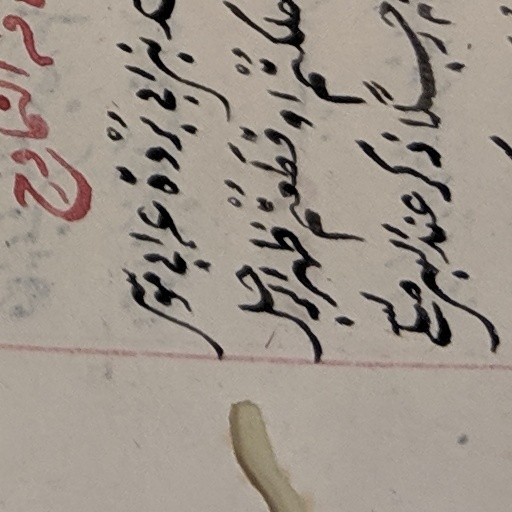 التمادح
بن ابي بُرْدة عن ابي موسى
اهلكتُمْ او قطَعْتُمْ ظهر الرجل
رجلًا ذكر عند النبي صلى